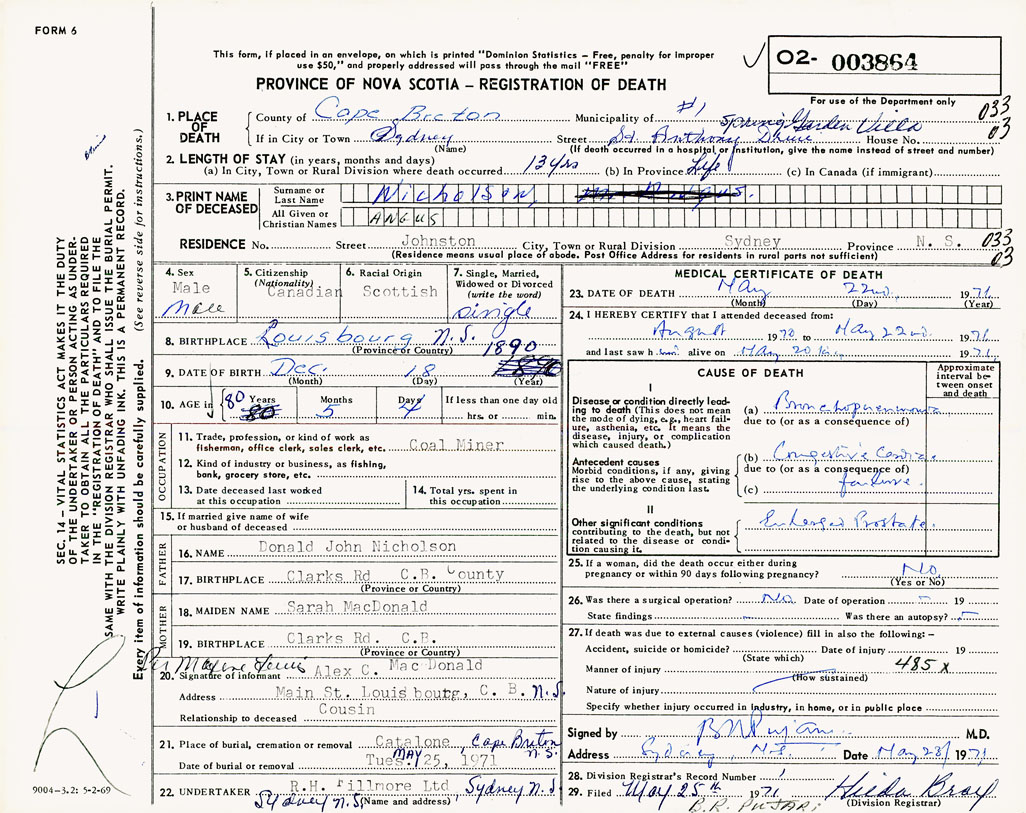 FORM 6
This form, if placed in an envelope, on which is printed "Dominion Statistics – Free, penalty for improper
use $50," and properly addressed will pass through the mail "FREE"
✓ 02- 003864
PROVINCE OF NOVA SCOTIA – REGISTRATION OF DEATH
For use of the Department only
033
03
1. PLACE OF DEATH
County of Cape Breton Municipality of #1 Spring Garden Villa
If in City or Town Sydney Street St. Anthony Drive House No.
(Name) (If death occurred in a hospital or institution, give the name instead of street and number)
2. LENGTH OF STAY (in years, months and days)
(a) In City, Town or Rural Division where death occurred 13 yrs (b) In Province Life (c) In Canada (if immigrant)
3. PRINT NAME OF DECEASED
Surname or Last Name Nicholson,
All Given or Christian Names ANGUS
RESIDENCE No. Street Johnston City, Town or Rural Division Sydney Province N. S. 033
03
(Residence means usual place of abode. Post Office Address for residents in rural parts not sufficient)
4. Sex
Male
Male
5. Citizenship
(Nationality)
Canadian
6. Racial Origin
Scottish
7. Single, Married,
Widowed or Divorced
(write the word)
Single
8. BIRTHPLACE Louisbourg N.S.
(Province or Country)
9. DATE OF BIRTH Dec. 18 1890 1890
(Month) (Day) (Year)
10. AGE in 80 Years 80 Months 5 Days 4
If less than one day old
hrs. or min.
OCCUPATION
11. Trade, profession, or kind of work as
fisherman, office clerk, sales clerk, etc. Coal Miner
12. Kind of industry or business, as fishing,
bank, grocery store, etc.
13. Date deceased last worked
at this occupation
14. Total yrs. spent in
this occupation
15. If married give name of wife
or husband of deceased
FATHER
16. NAME Donald John Nicholson
17. BIRTHPLACE Clarks Rd C.B. County
(Province or Country)
MOTHER
18. MAIDEN NAME Sarah MacDonald
19. BIRTHPLACE Clarks Rd. C.B.
(Province or Country)
Per Maxine Lewis
20. Signature of informant Alex C. MacDonald
Address Main St. Louisbourg, C. B. N.S.
Relationship to deceased Cousin
21. Place of burial, cremation or removal Catalone, Cape Breton N.S.
Date of burial or removal Tues. MAY 25, 1971
22. UNDERTAKER R.H. Fillmore Ltd, Sydney N.S
Sydney N.S (Name and address)
MEDICAL CERTIFICATE OF DEATH
23. DATE OF DEATH May 22nd. 1971
(Month) (Day) (Year)
24. I HEREBY CERTIFY that I attended deceased from:
August 1970 to May 22nd. 1971
and last saw him alive on May 20 1971
CAUSE OF DEATH
Approximate interval between onset and death
I
Disease or condition directly leading to death (This does not mean
the mode of dying, e.g., heart failure, asthenia, etc. It means the
disease, injury, or complication
which caused death.)
(a) Bronchopneumonia
due to (or as a consequence of)
Antecedent causes
Morbid conditions, if any, giving
rise to the above cause, stating
the underlying condition last.
(b) Congestive Cardiac
due to (or as a consequence of)
(c) failure.
II
Other significant conditions
contributing to the death, but not
related to the disease or condition causing it.
Enlarged Prostate.
25. If a woman, did the death occur either during
pregnancy or within 90 days following pregnancy? No
(Yes or No)
26. Was there a surgical operation? No. Date of operation – 19
State findings – Was there an autopsy? –
27. If death was due to external causes (violence) fill in also the following: –
Accident, suicide or homicide? Date of injury 19
(State which)
Manner of injury 485 X
(How sustained)
Nature of injury
Specify whether injury occurred in industry, in home, or in public place
Signed by B R Pujari M.D.
Address Sydney, N.S Date May 23/1971
28. Division Registrar's Record Number 1
29. Filed May 25th 1971 Hilda Bray
B.R. PUJARI (Division Registrar)
SEC. 14 – VITAL STATISTICS ACT MAKES IT THE DUTY
OF THE UNDERTAKER OR PERSON ACTING AS UNDERTAKER TO OBTAIN ALL THE PARTICULARS REQUIRED
IN THE "REGISTRATION OF DEATH" AND TO FILE THE
SAME WITH THE DIVISION REGISTRAR WHO SHALL ISSUE THE BURIAL PERMIT.
WRITE PLAINLY WITH UNFADING INK. THIS IS A PERMANENT RECORD.
Every item of information should be carefully supplied. (See reverse side for instructions.)
9004–3.2: 5-2-69